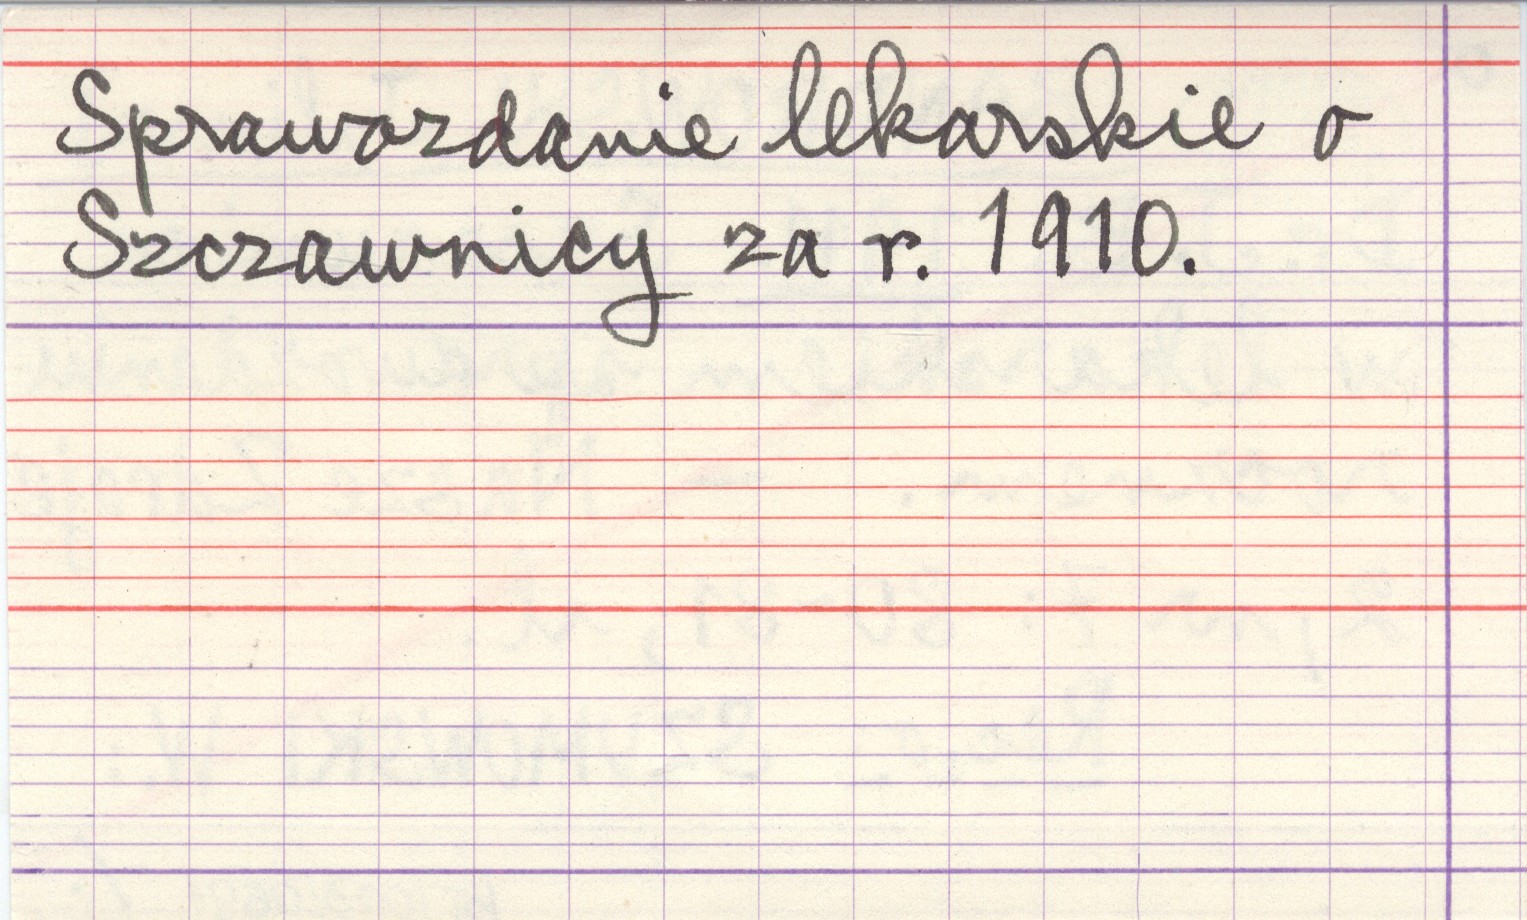 Sprawozdanie lekarskie o
Szczawnicy za r. 1910.